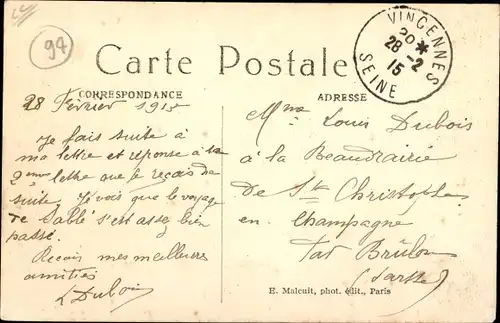 94
Carte Postale
VINCENNES
20 *
28 -2
15
SEINE
CORRESPONDANCE
ADRESSE
28 Février 1915
Je fais suite à
ma lettre et réponse à ta
2ème lettre que je reçois de
suite. Je vois que le voyage
de Sablé s'est assez bien
passé.
Reçois mes meilleures
amitiés
L Dubois
Mme Louis Dubois
à la Beaudrairie
de St Christophe
en Champagne
Par Brûlon
(Sarthe)
E. Malcuit, phot. édit., Paris